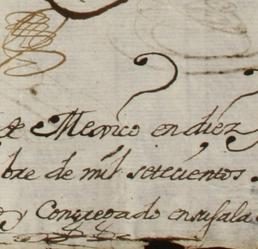 de Mexico en diez
bre de mil setecientos
Congregado en su sala